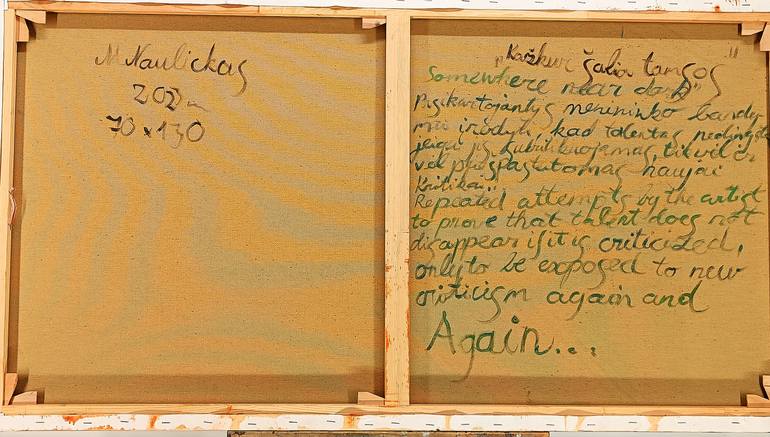 M Naulickas
202
70 x 130
„Kažkur šalia tamsos"
Somewhere near dark"
Pasikartojantys menininko bandy-
mai įrodyti, kad talentas nedingsta
jeigu jis kritikuojamas, tik vėl ir
vėl naujai
Kritikai..
Repeated attempts by the artist
to prove that talent does not
disappear if it is criticized,
only to be exposed to new
criticism again and
Again...